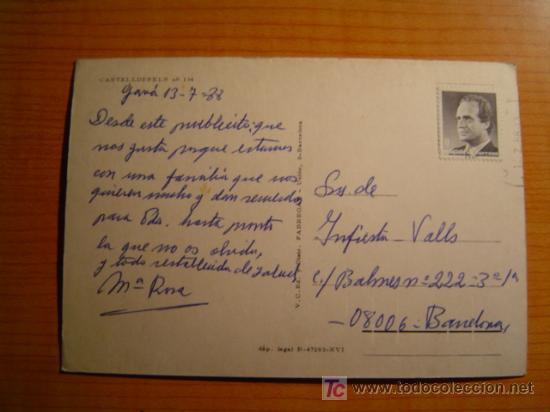 CASTELLDEFELS nº 134
Gavá 13-7-88
Desde este pueblecito que
nos gusta porque estamos
con una familia que nos
quieren mucho y dan recuerdos
para Vds. hasta pronto
la que no os olvida,
y todo restablecida de salud
Mª Rosa
Srs de
Infiesta-Valls
c/ Balmes nº 222-3º-1ª
-08006-Barcelona,
dép. legal B-47293-XVI
TC todocoleccion
www.todocoleccion.net